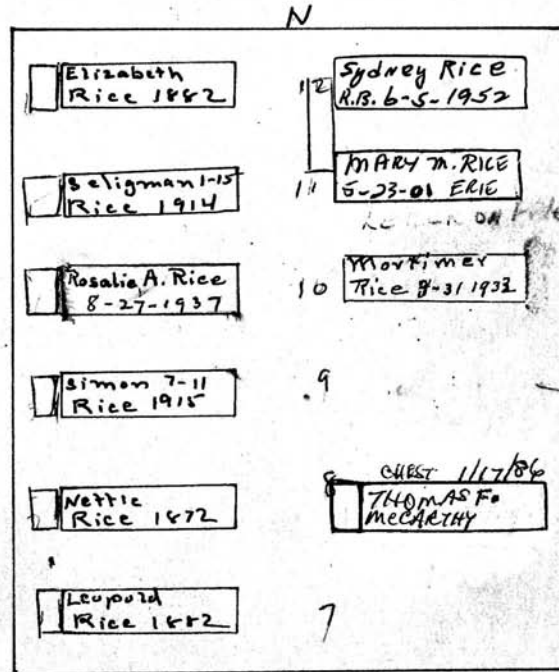 N
Elizabeth
Rice 1882
Seligman 1-15
Rice 1914
Rosalie A. Rice
8-27-1937
Simon 7-11
Rice 1915
Nettie
Rice 1872
Leopold
Rice 1882
12
Sydney Rice
R.B. 6-5-1952
11
MARY M. RICE
5-23-01 ERIE
ON
10
Mortimer
Rice 31 1933
9
8
CHEST 1/17/86
THOMAS F.
McCARTHY
7